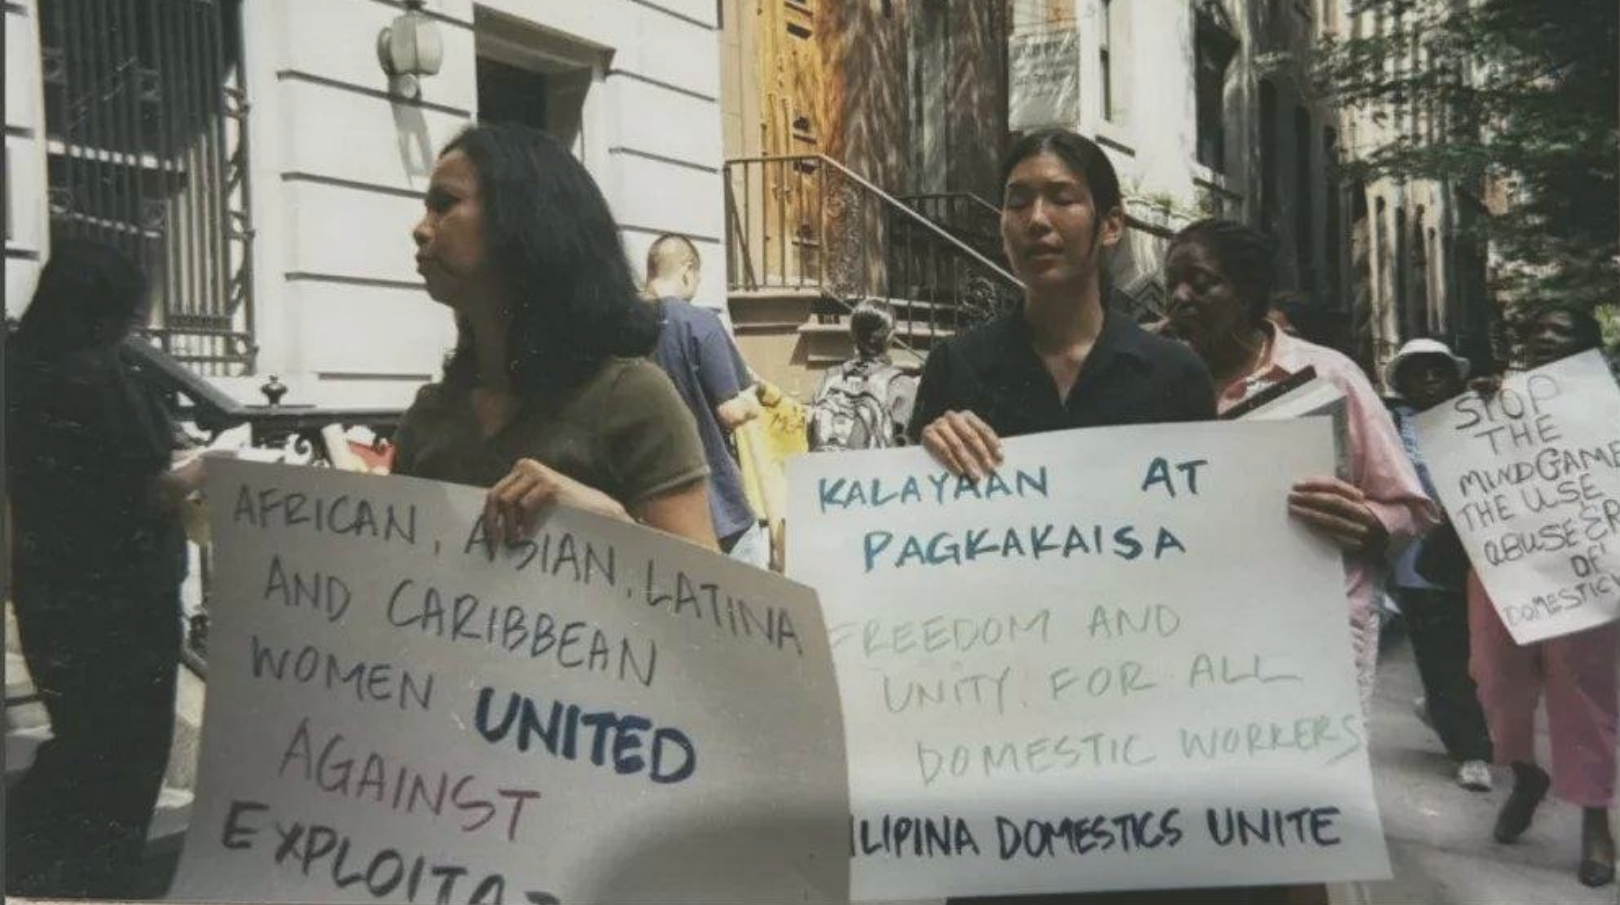 AFRICAN, ASIAN, LATINA
AND CARIBBEAN
WOMEN UNITED
AGAINST
EXPLOITA
KALAYAAN AT
PAGKAKAISA
FREEDOM AND
UNITY. FOR ALL
DOMESTIC WORKERS
ILIPINA DOMESTICS UNITE
STOP
THE
MINDGAME
THE USE
ABUSE &
OF
DOMESTIC